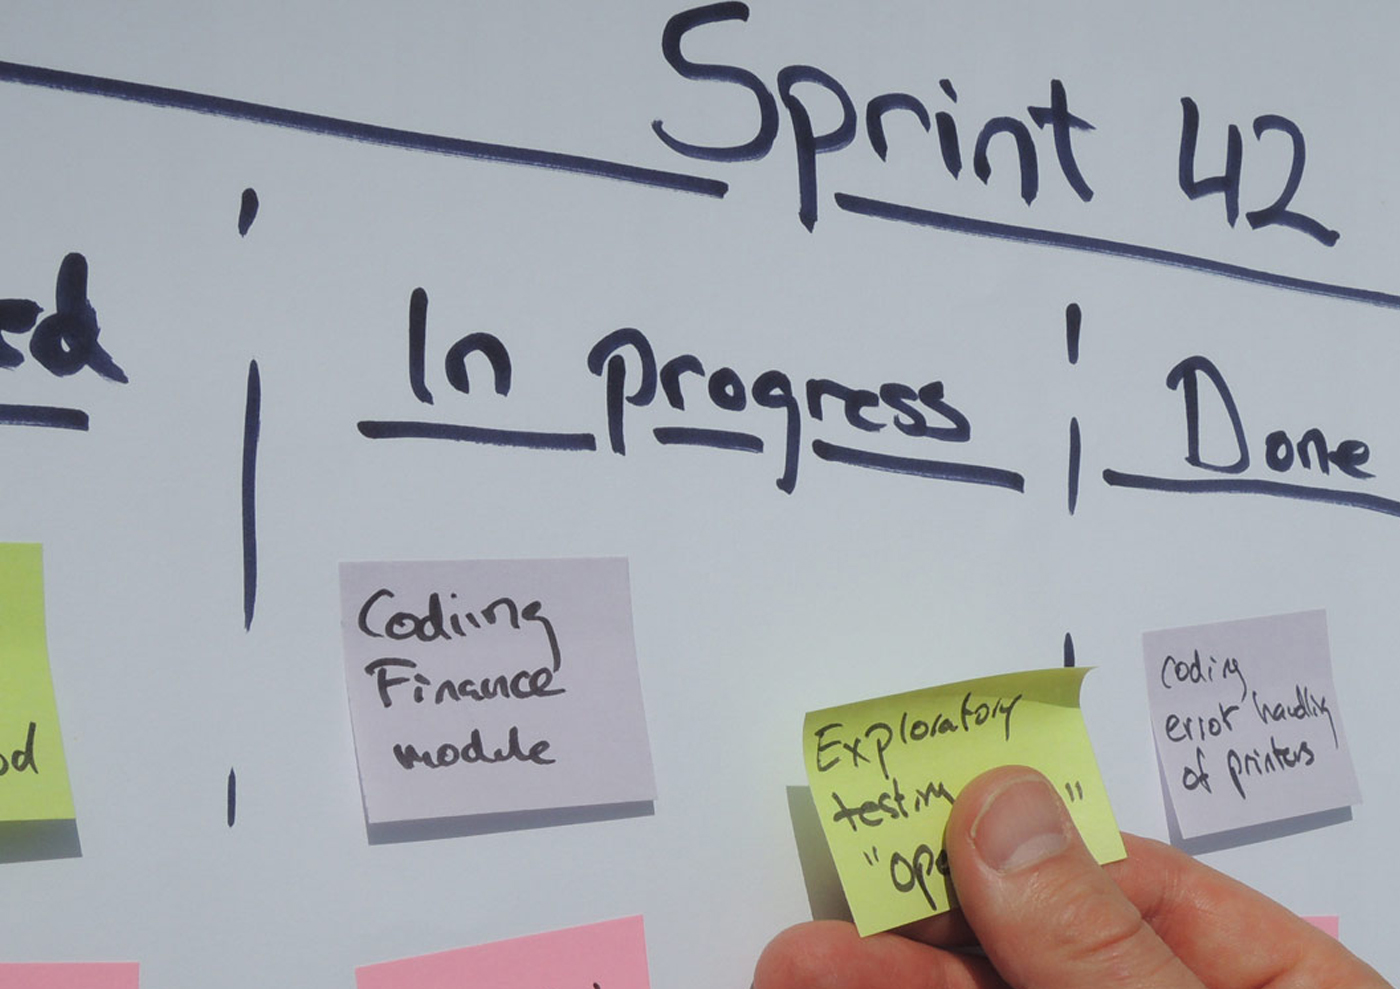 Sprint 42
In progress
Done
Codiing
Finance
module
Exploratory
testing
coding
error handling
of printers